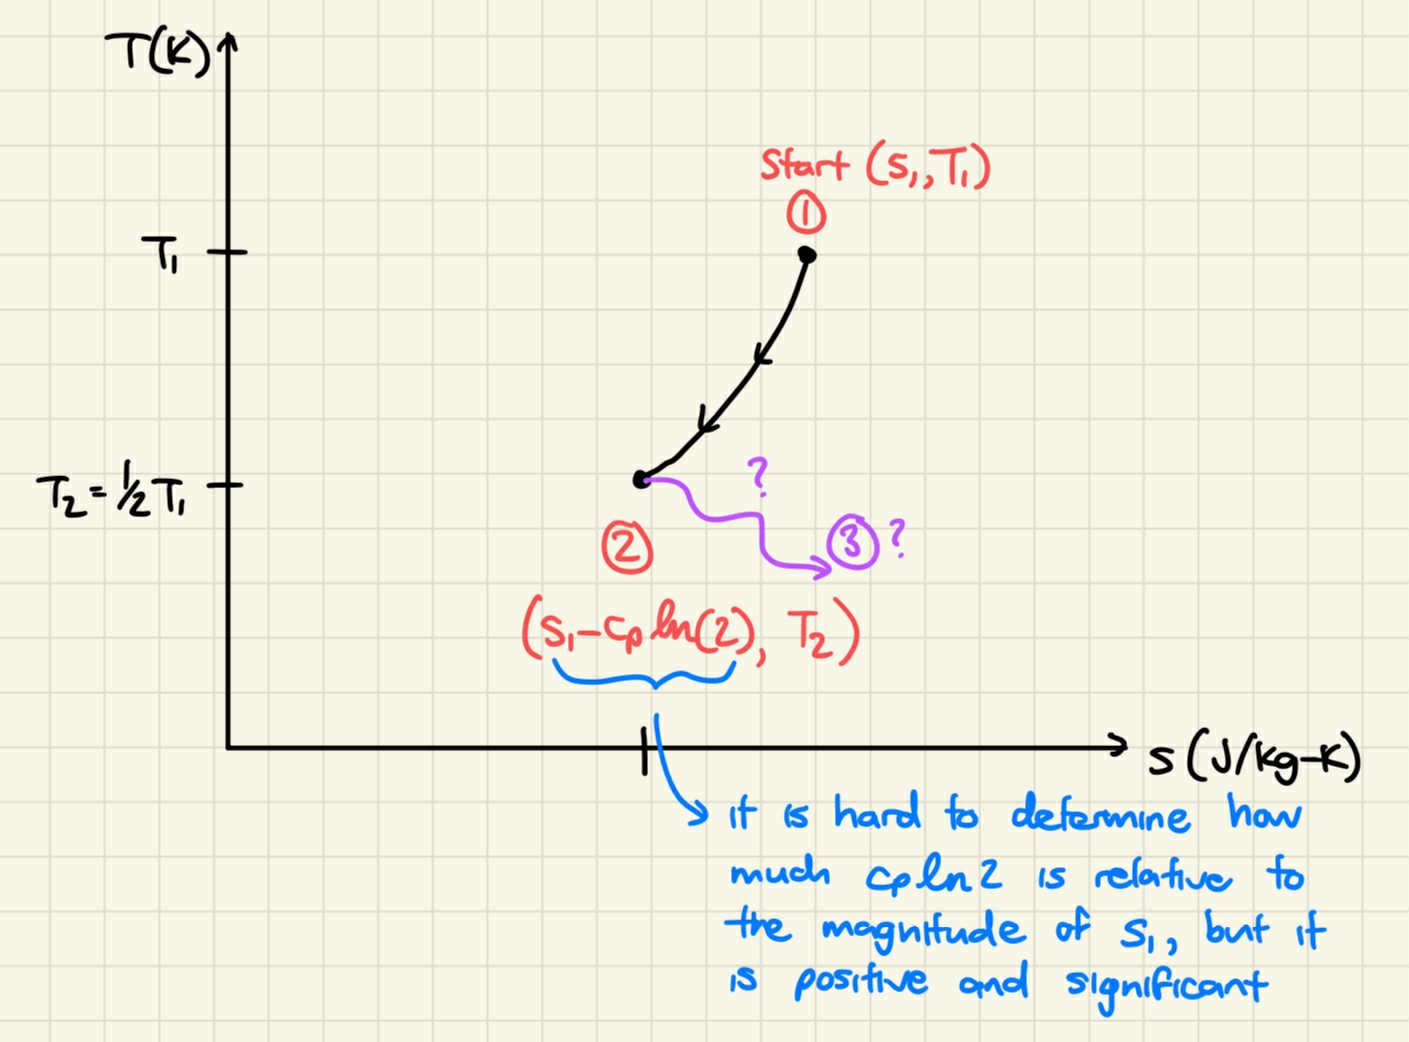 T(K)
Start (s₁, T₁)
①
T₁
?
T₂ = ½ T₁
② 
③ ?
(s₁ - cp ln(2), T₂)
s (J/kg-K)
it is hard to determine how
much cp ln 2 is relative to
the magnitude of s₁, but it
is positive and significant